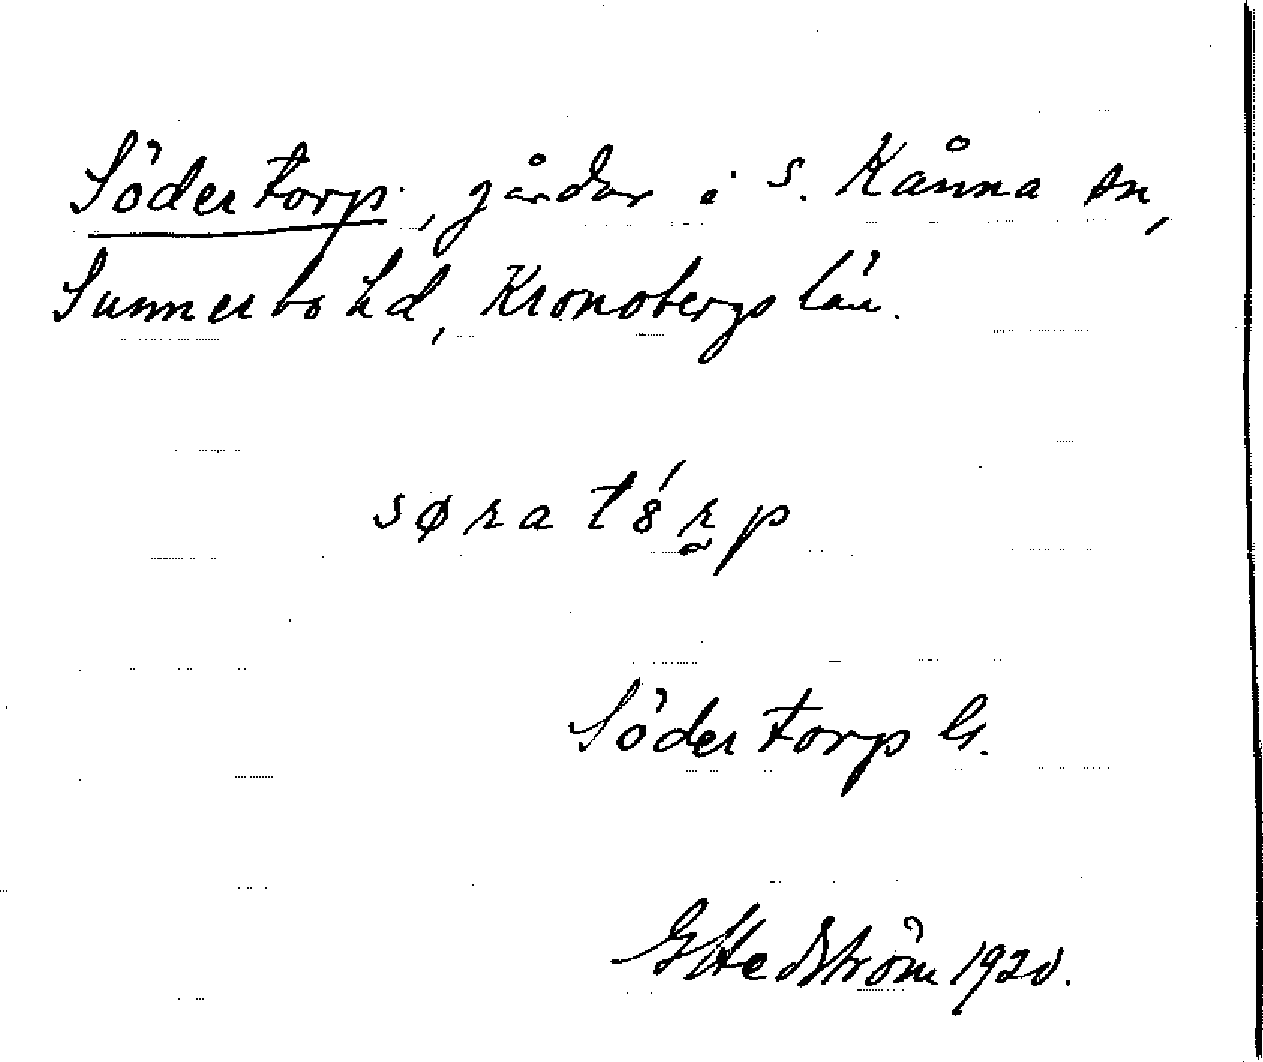 Södertorp, gårdar i S. Kånna sn,
Sunnerbo hd, Kronobergs län.
søra tórp
Södertorp G.
G Hedström 1920.